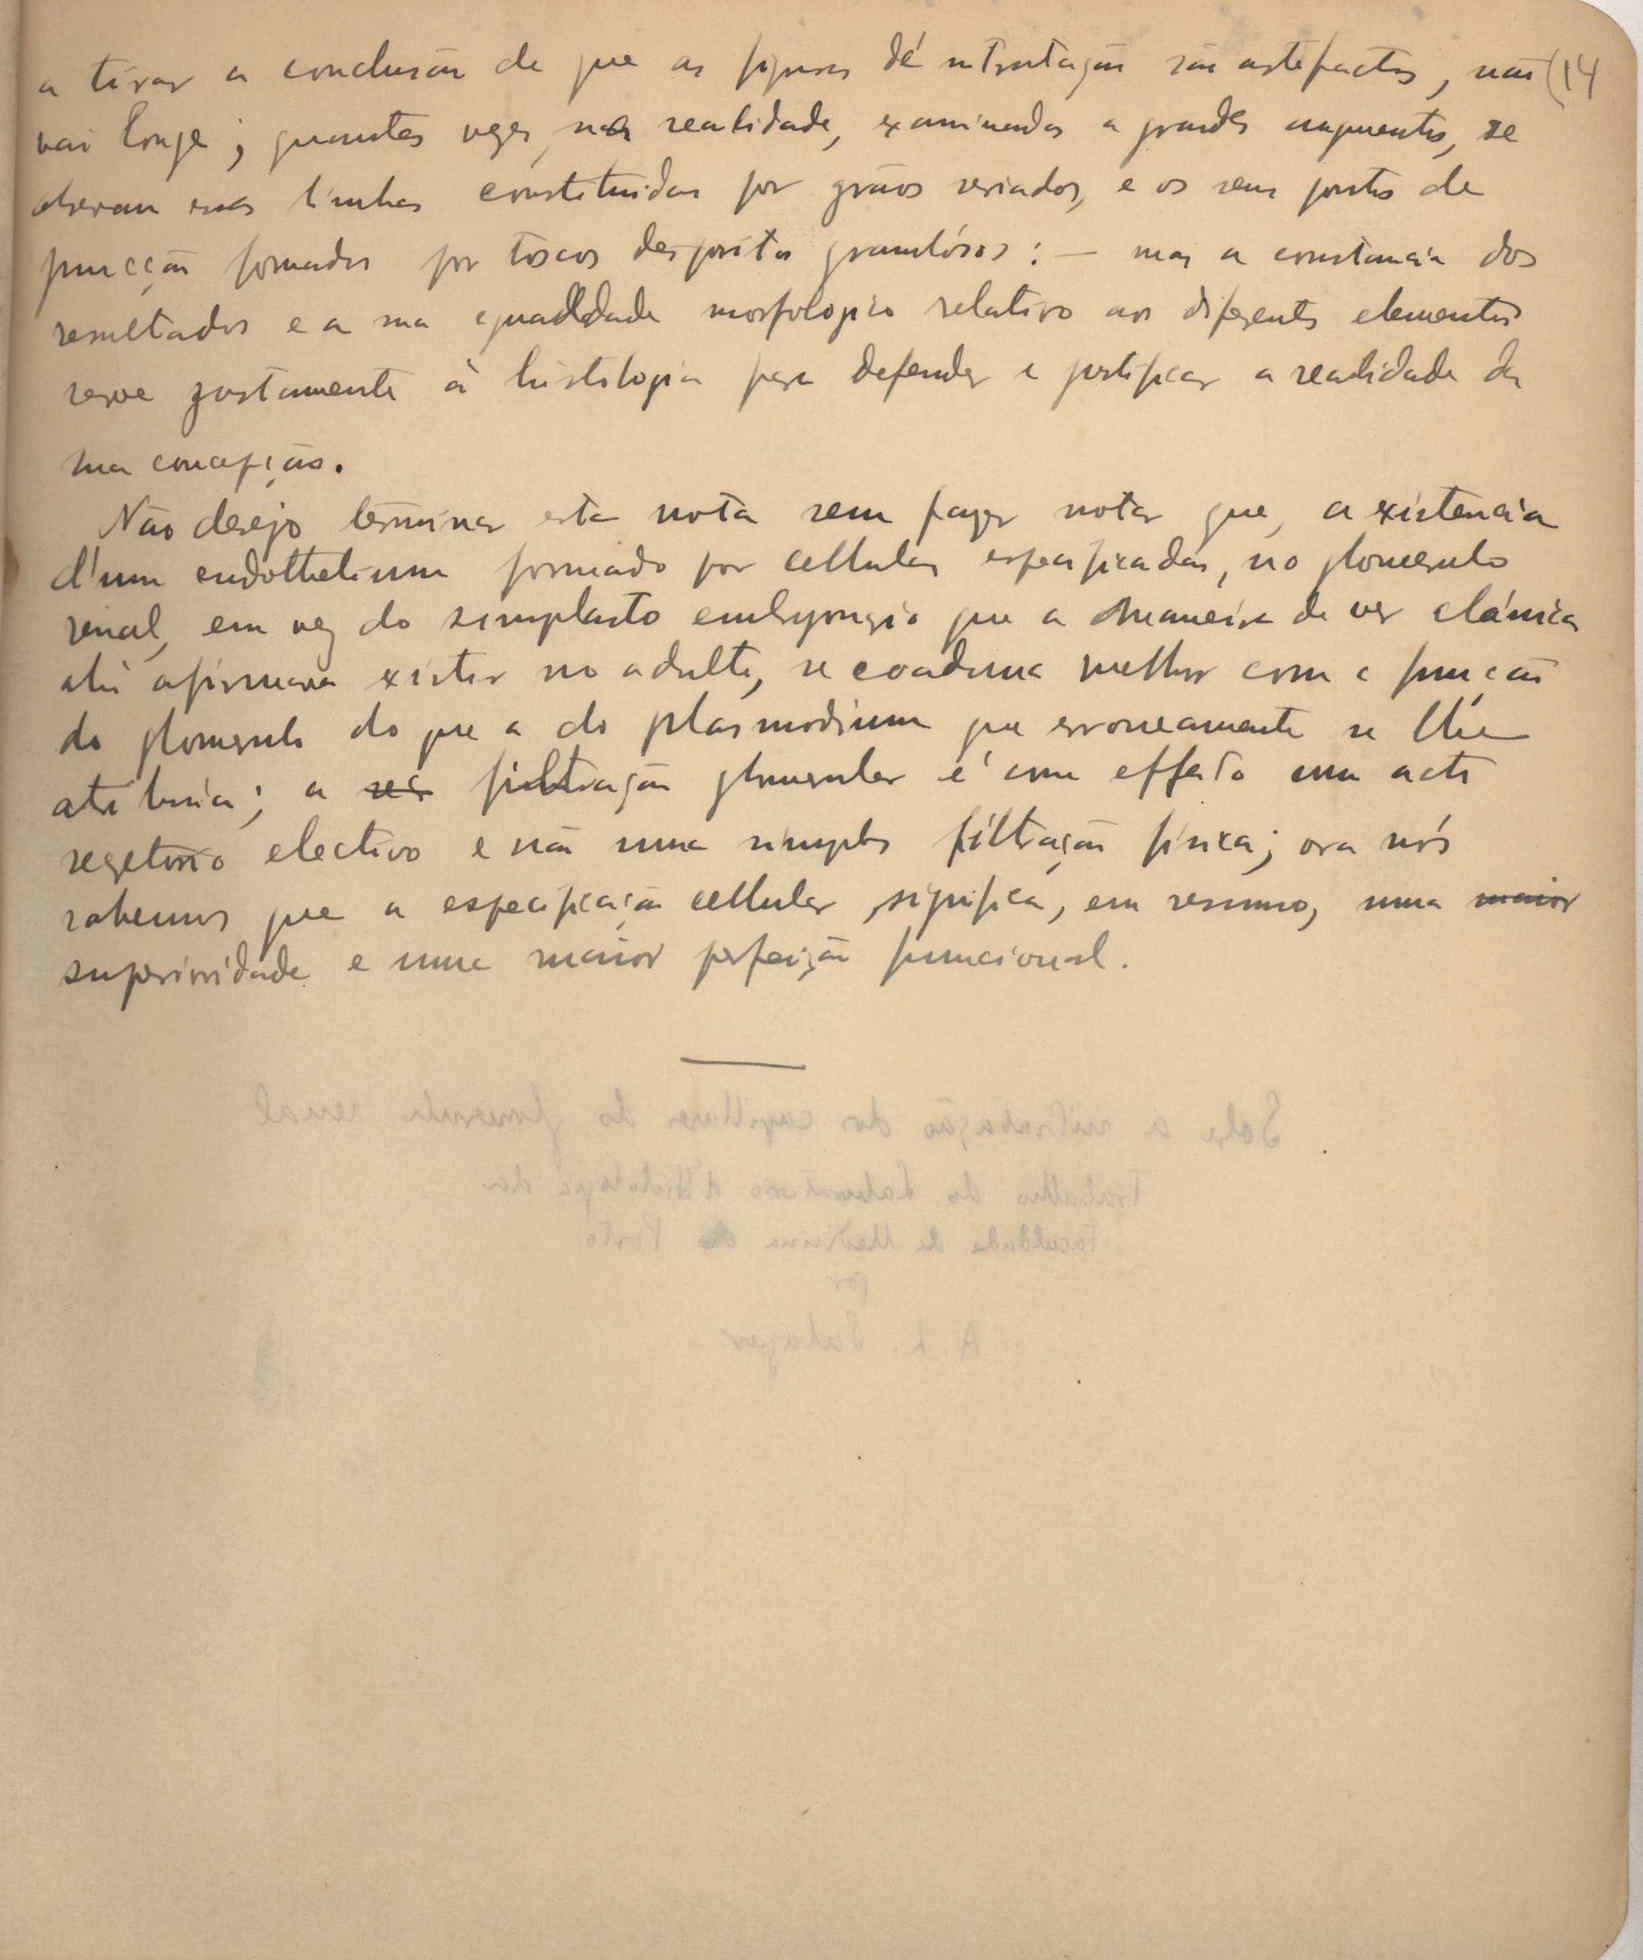 a tirar a conclusão de que as figuras de nitratação são artefactos, não (14
vai longe; quantas vezes, na realidade, examinadas a grandes augmentos, se
observam essas linhas constituidas por grãos seriados, e os seus pontos de
juncção formados por toscos depositos granulósos: — mas a constancia dos
resultados e a sua egualdade morfologica relativo aos diferentes elementos
serve justamente à histologia para defender e justificar a realidade da
sua concepção.
Não desejo terminar esta nota sem fazer notar que, a existencia
d'um endothelium formado por cellulas especificadas, no glomerulo
renal, em vez do simplasto embryonario que a maneira de ver clássica
ahi afirmava existir no adulto, se coaduna melhor com a funcção
do glomerulo do que a do plasmodium que erroneamente se lhe
atribuia; a filtração glomerular é com effeito um acto
secretorio electivo e não uma simples filtração fisica; ora nós
sabemos que a especificação cellular, significa, em resumo, uma maior
superioridade e uma maior perfeição funcional.
Sobre a nitratação dos capillares do glomerulo renal
Trabalho do Laboratorio d'Histologia da
Faculdade de Medicina do Porto
por
A. L. Salazar